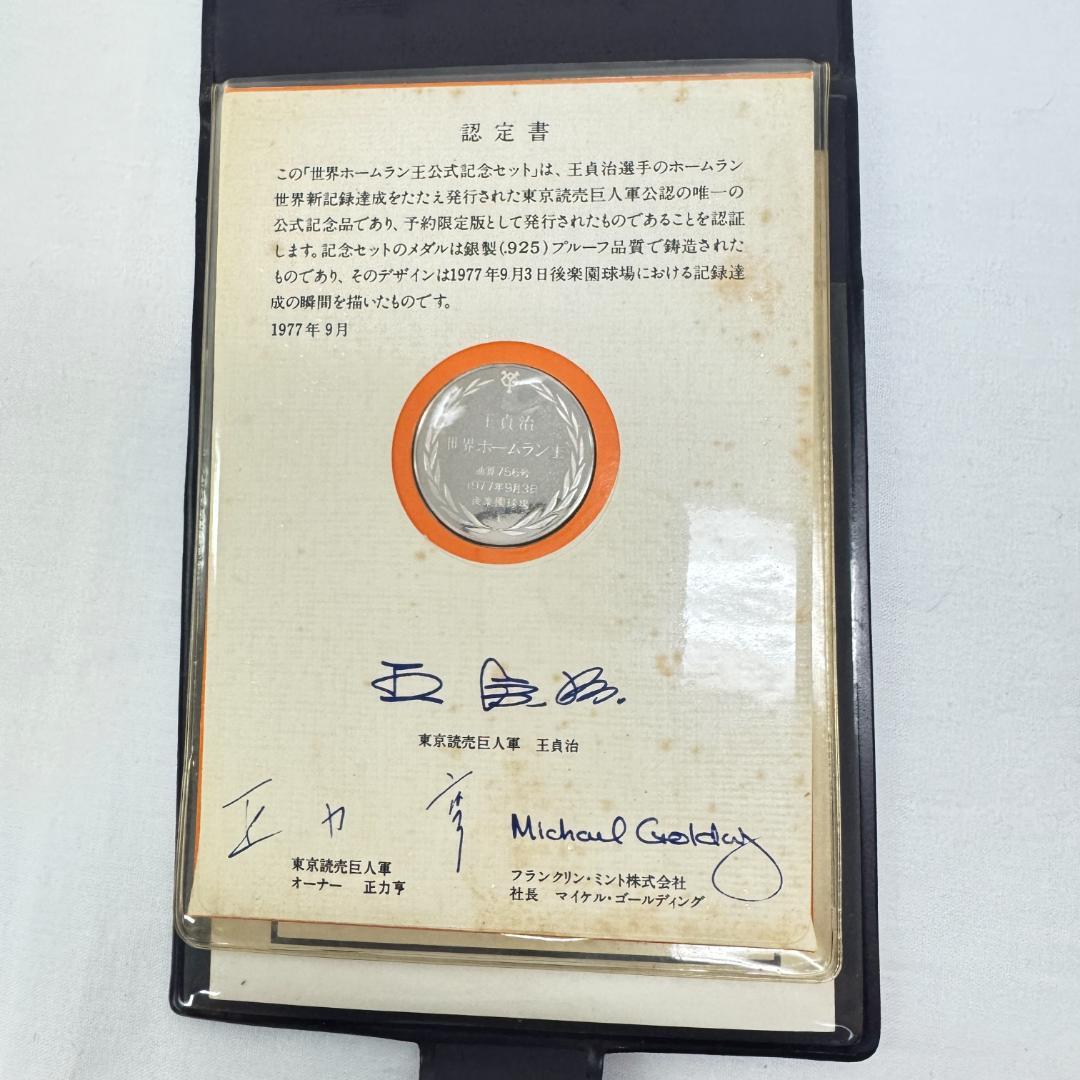 認定書
この「世界ホームラン王公式記念セット」は、王貞治選手のホームラン
世界新記録達成をたたえ発行された東京読売巨人軍公認の唯一の
公式記念品であり、予約限定版として発行されたものであることを認証
します。記念セットのメダルは銀製(.925)プルーフ品質で鋳造された
ものであり、そのデザインは1977年9月3日後楽園球場における記録達
成の瞬間を描いたものです。
1977年9月
王貞治
世界ホームラン王
通算756号
1977年9月3日
後楽園球場
王貞治
東京読売巨人軍 王貞治
正力亨
東京読売巨人軍
オーナー 正力亨
Michael Golding
フランクリン・ミント株式会社
社長 マイケル・ゴールディング